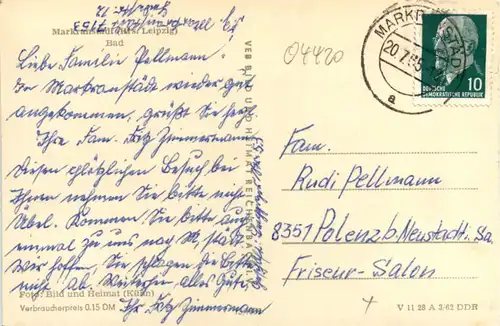 Markranstädt (Krs. Leipzig)
Bad
Liebe Familie Pellmann.
In Markranstädt wieder gut
angekommen, grüßt Sie herzl.
Ihr Fam. Fritz Zimmermann
Diesen plötzlichen Besuch bei
Ihnen nehmen Sie bitte nicht
Übel. Kommen Sie bitte auch
einmal zu uns nach M, städt
Wir hoffen, Sie schlagen die Bitte
nicht ab. Weiterhin alles Gute,
Ihr Fritz Zimmermann
Foto: Bild und Heimat (Kühn)
Verbraucherpreis 0.15 DM
VEB BILD UND HEIMAT REICHENBACH
04420
MARKRANSTÄDT
20.7.65
a
10
DEUTSCHE
DEMOKRATISCHE REPUBLIK
Fam.
Rudi Pellmann
8351 Polenz b. Neustadt. Sa.
Friseur-Salon
V 11 28 A 3/62 DDR